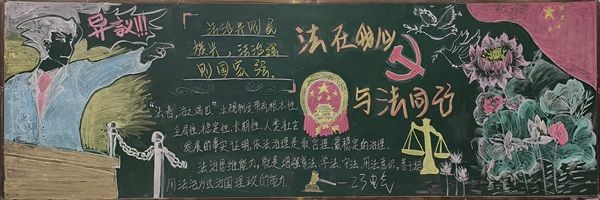 异议!!!
法治兴则民
族兴，法治强
则国家强。
法在我心
与法同行
“法者，治之端也”法规制度带有根本性、
全局性、稳定性、长期性。人类社会
发展的事实证明，依法治理是最可靠、最稳定的治理。
法治思维能力，就是增强尊法、学法、守法、用法意识，善于运
用法治方式治国理政的能力。